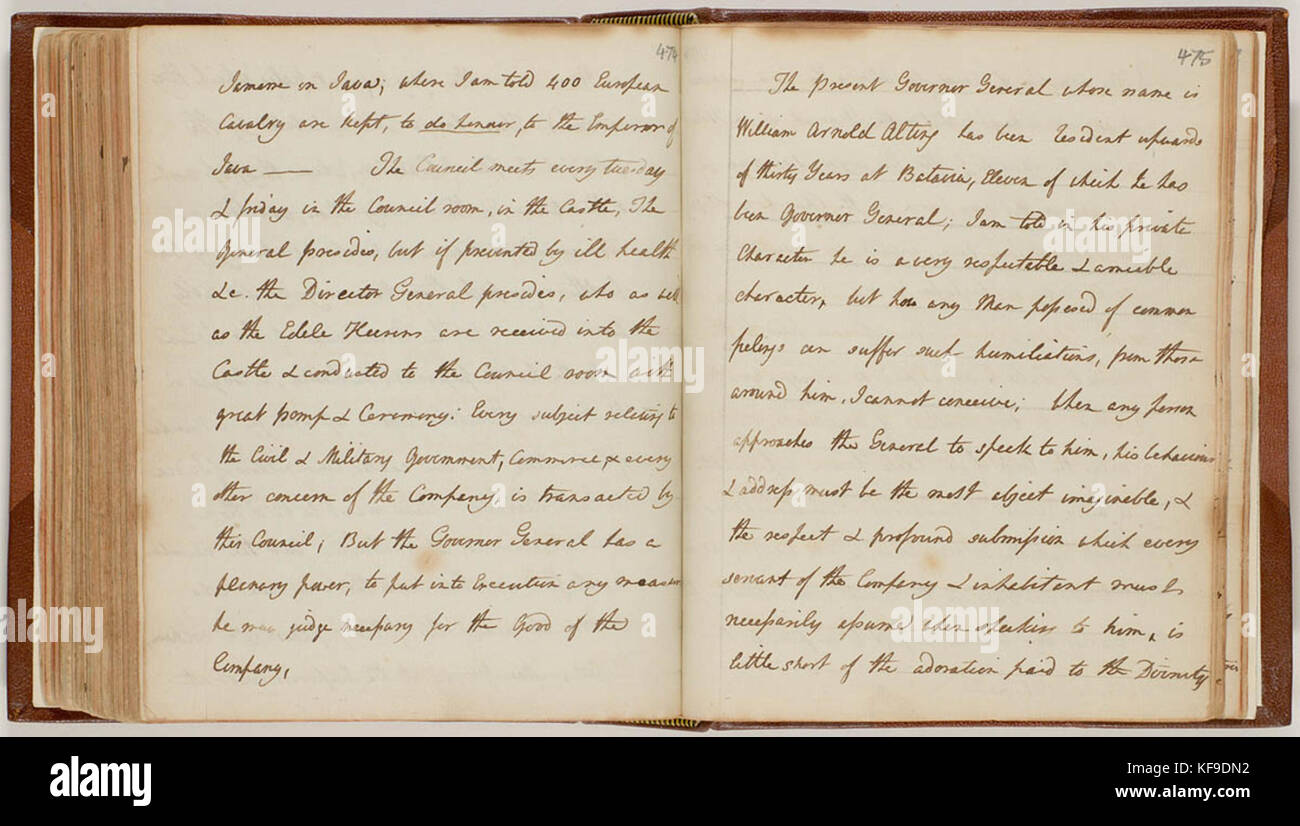 474
in Java; where I am told 400 European
Cavalry are kept, to do honour, to the Emperor of
Java — The Council meets every tuesday
& friday in the Council room, in the Castle, The
General presides, but if prevented by ill health
&c. the Director General presides, who as well
as the Edele Heerens are received into the
Castle & conducted to the Council room with
great pomp & Ceremony: Every subject relating to
the Civil & Military Government, Commerce, & every
other concern of the Company, is transacted by
this Council; But the Governor General has a
plenary power, to put into Execution any measure
he may judge necessary for the Good of the
Company,
475
The present Governor General whose name is
William Arnold Alting has been resident upwards
of thirty Years at Batavia, Eleven of which he has
been Governor General; I am told in his private
Character he is a very respectable & amiable
character, but how any Man possessed of common
feelings can suffer such humiliations, from those
around him, I cannot conceive; when any person
approaches the General to speak to him, his behaviour
& address must be the most abject imaginable, &
the respect & profound submission which every
servant of the Company & inhabitant must
necessarily assume when speaking to him, is
little short of the adoration paid to the Divinity
alamy
alamy
Image ID: KF9DN2
www.alamy.com